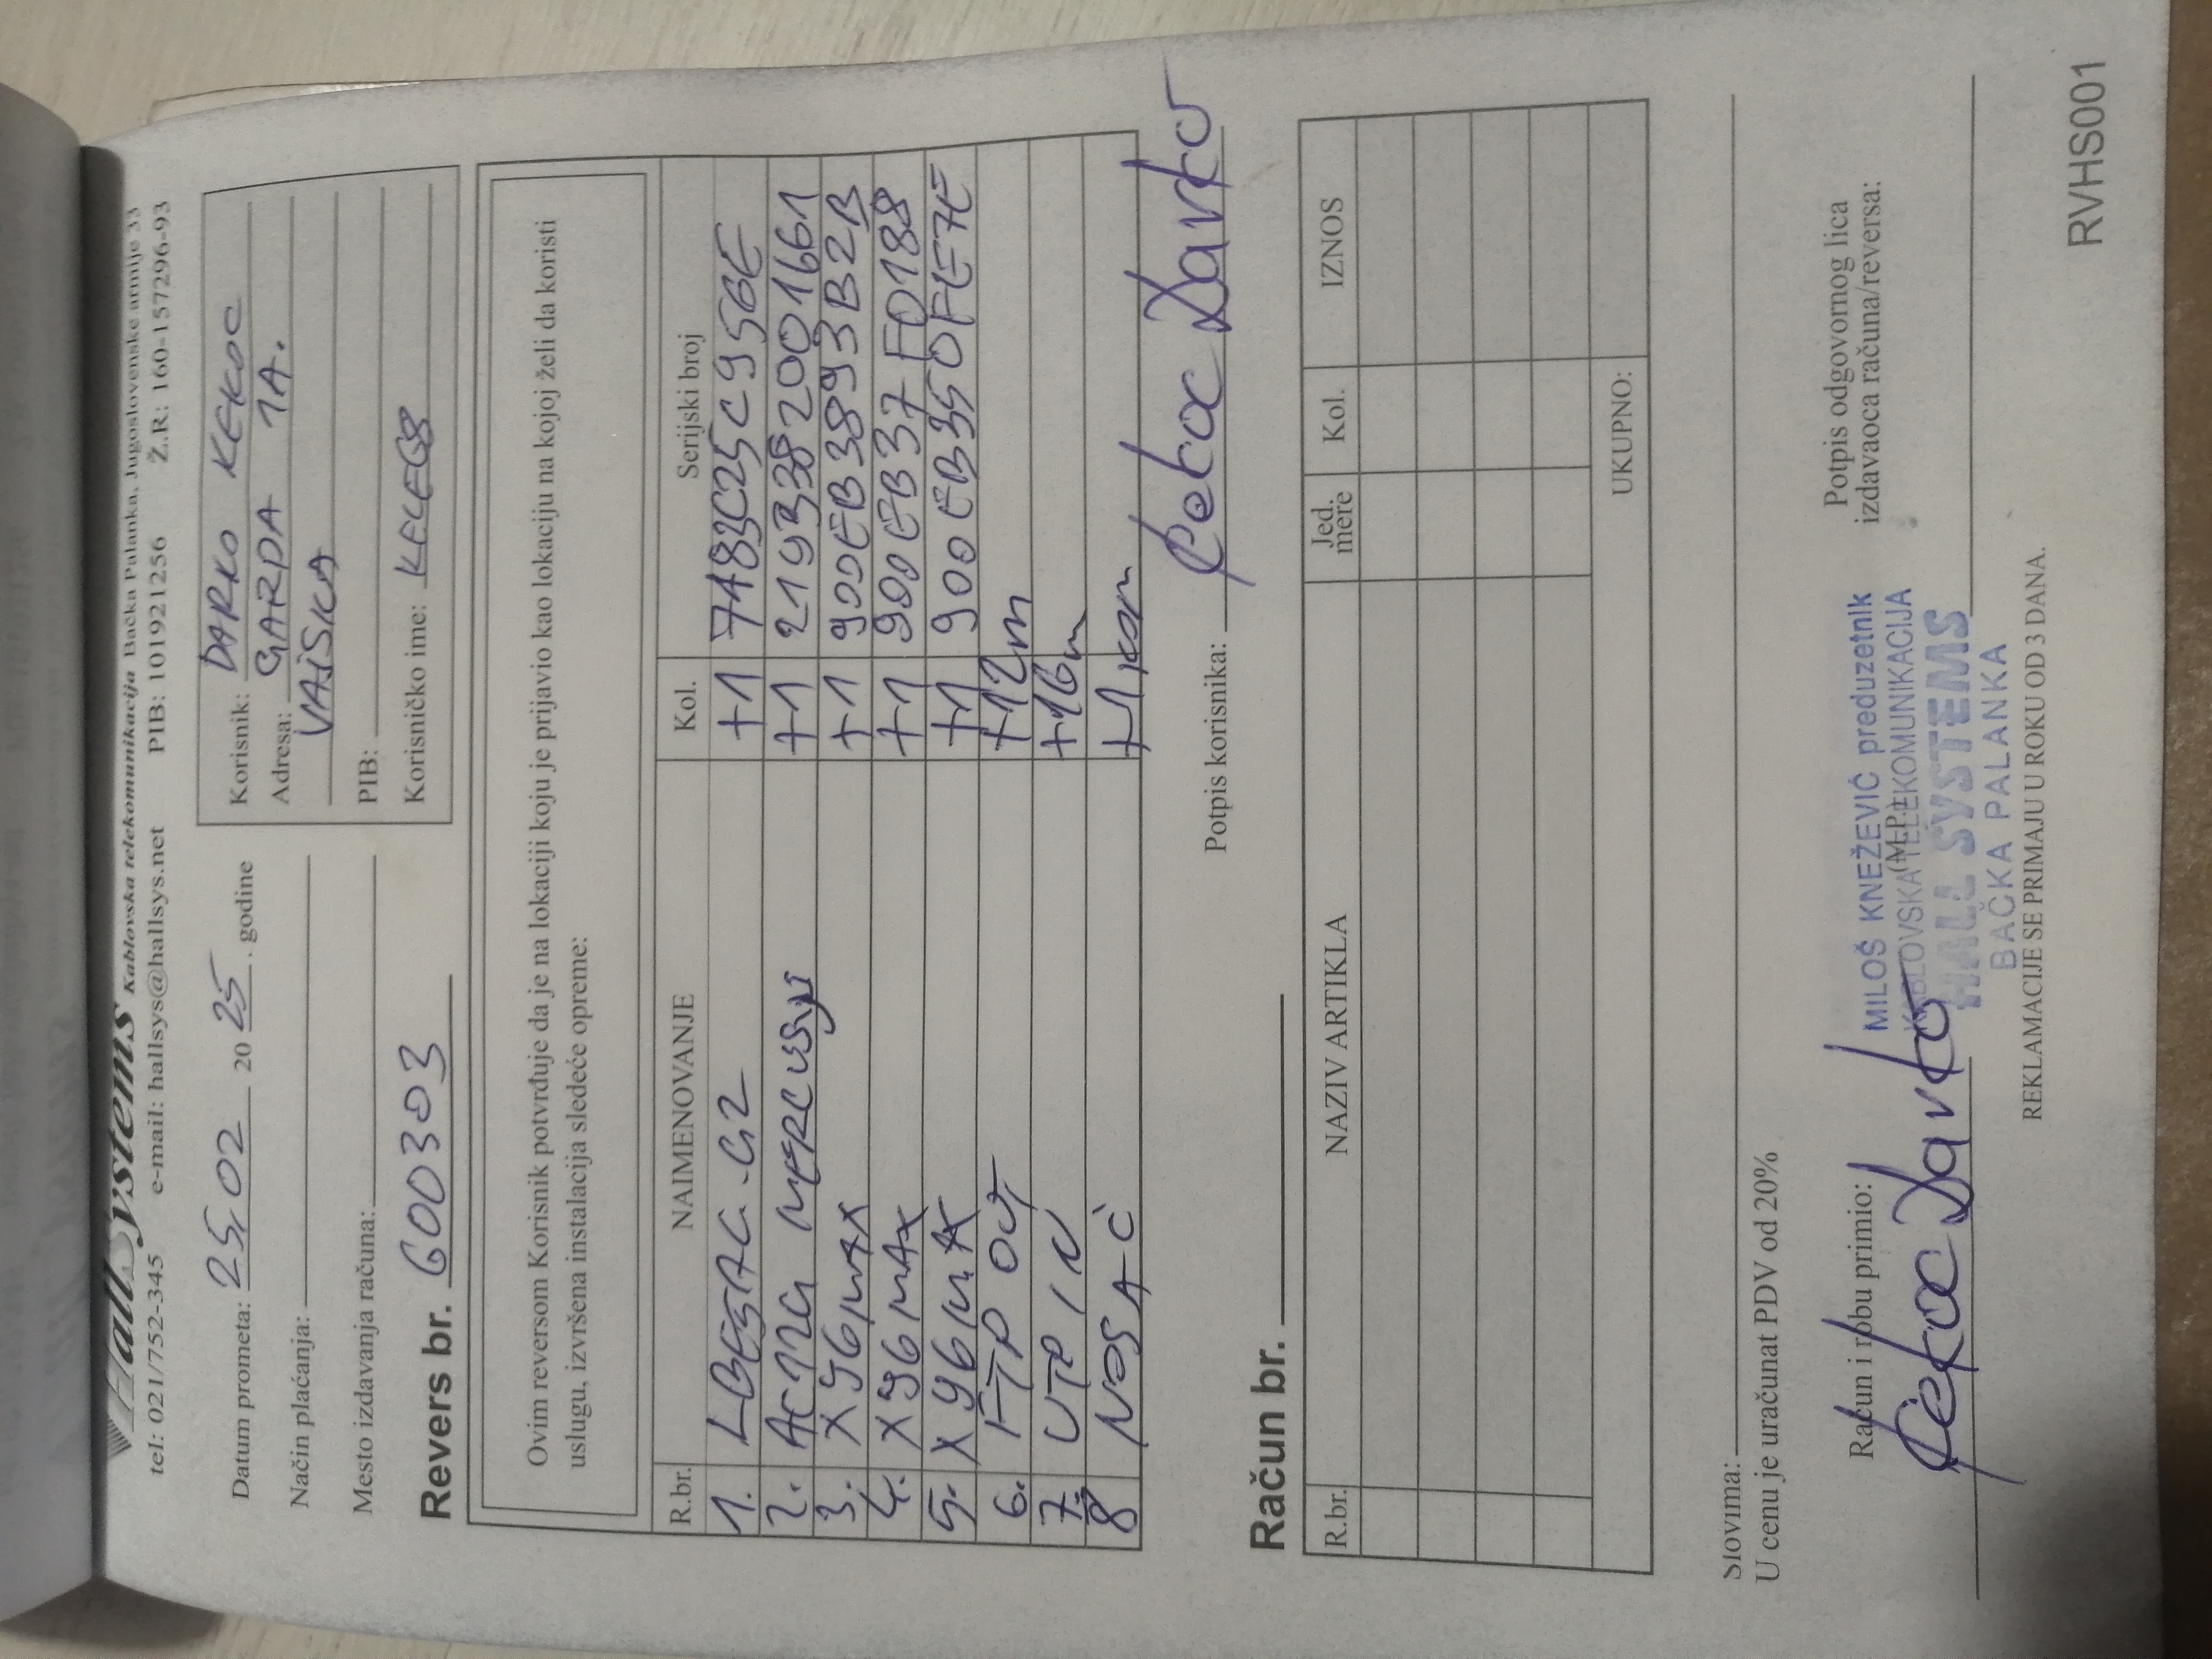 HallSystems Kablovska telekomunikacija Bačka Palanka, Jugoslovenske armije 33
tel: 021/752-345 e-mail: hallsys@hallsys.net PIB: 101921256 Ž.R: 160-157296-93
Datum prometa: 25.02 20 25 . godine
Način plaćanja:
Mesto izdavanja računa:
Revers br. 600303
Korisnik: DARKO KEKOC
Adresa: GARDA 1A.
VAJSKA
PIB:
Korisničko ime:
Ovim reversom Korisnik potvrđuje da je na lokaciji koju je prijavio kao lokaciju na kojoj želi da koristi
uslugu, izvršena instalacija sledeće opreme:
R.br. NAIMENOVANJE Kol. Serijski broj
1. LBE5AC.G2 +1 7483C25C956E
2. AC12G MERCUSYS +1 2193382001661
3. XY6MAX +1 900EB3893B2B
4. XY6MAX +1 900EB37F0188
5. XY6MAX +1 900EB350FE7E
6. FTP OUT +12m
7. UTP IN +16m
8 NOSAČ +1 kom
Potpis korisnika: Kekoc Darko
Račun br.
R.br. NAZIV ARTIKLA Jed. mere Kol. IZNOS
UKUPNO:
Slovima:
U cenu je uračunat PDV od 20%
Račun i robu primio: (M.P.) Potpis odgovornog lica
izdavaoca računa/reversa:
Kekoc Darko
MILOŠ KNEŽEVIĆ preduzetnik
KABLOVSKA TELEKOMUNIKACIJA
HALL SYSTEMS
BAČKA PALANKA
REKLAMACIJE SE PRIMAJU U ROKU OD 3 DANA.
RVHS001